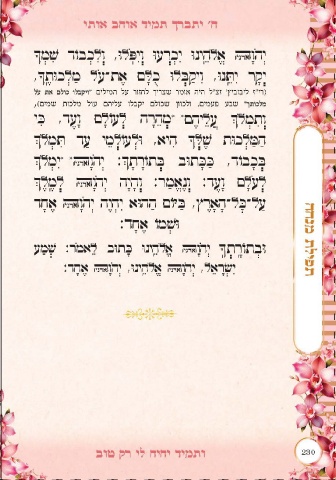 ה' יתברך תמיד אוהב אותי
יְהֹוָה אֱלֹהֵינוּ יִכְרְעוּ וְיִפֹּלוּ, וְלִכְבוֹד שִׁמְךָ
יְקָר יִתֵּנוּ, וִיקַבְּלוּ כֻלָּם אֶת־עֹל מַלְכוּתֶךָ,
שבע פעמים, ולכוון שכולם יקבלו עליהם עול מלכות שמים),
וְתִמְלֹךְ עֲלֵיהֶם מְהֵרָה לְעוֹלָם וָעֶד, כִּי
הַמַּלְכוּת שֶׁלְּךָ הִיא, וּלְעוֹלְמֵי עַד תִּמְלֹךְ
בְּכָבוֹד, כַּכָּתוּב בְּתוֹרָתָךְ: יְהֹוָה יִמְלֹךְ
לְעֹלָם וָעֶד: וְנֶאֱמַר: וְהָיָה יְהֹוָה לְמֶלֶךְ
עַל־כָּל־הָאָרֶץ, בַּיּוֹם הַהוּא יִהְיֶה יְהֹוָה אֶחָד
וּשְׁמוֹ אֶחָד:
וּבְתוֹרָתְךָ יְהֹוָה אֱלֹהֵינוּ כָּתוּב לֵאמֹר: שְׁמַע
יִשְׂרָאֵל, יְהֹוָה אֱלֹהֵינוּ, יְהֹוָה אֶחָד:
תפילת מנחה
ותמיד יהיה לי רק טוב
230